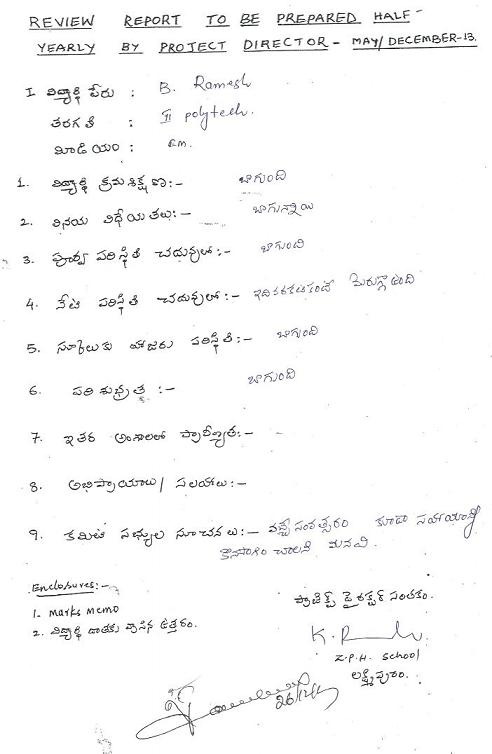 REVIEW REPORT TO BE PREPARED HALF-
YEARLY BY PROJECT DIRECTOR - MAY/DECEMBER-13.
I విద్యార్థి పేరు : B. Ramesh
తరగతి : II polytech.
మీడియం : E.m.
1. విద్యార్థి క్రమశిక్షణ:- బాగుంది
2. వినయ విధేయతలు:- బాగున్నాయి
3. పూర్వ పరిస్థితి చదువులో:- బాగుంది
4. నేటి పరిస్థితి చదువులో:- ఇదివరకటికంటే మెరుగ్గా ఉంది
5. స్కూలుకు హాజరు పరిస్థితి:- బాగుంది
6. పరిశుభ్రత :- బాగుంది
7. ఇతర అంశాలలో ప్రావీణ్యత:-
8. అభిప్రాయాలు/ సలహాలు:-
9. కమిటి సభ్యుల సూచనలు:- వచ్చే సంవత్సరం కూడా సహాయాన్ని
కొనసాగించాలని మనవి.
Enclosures:-
1. marks memo
2. విద్యార్థి దాతకు వ్రాసిన ఉత్తరం.
ప్రాజెక్ట్ డైరక్టర్ సంతకం.
Z.P.H. School
లక్ష్మీపురం.